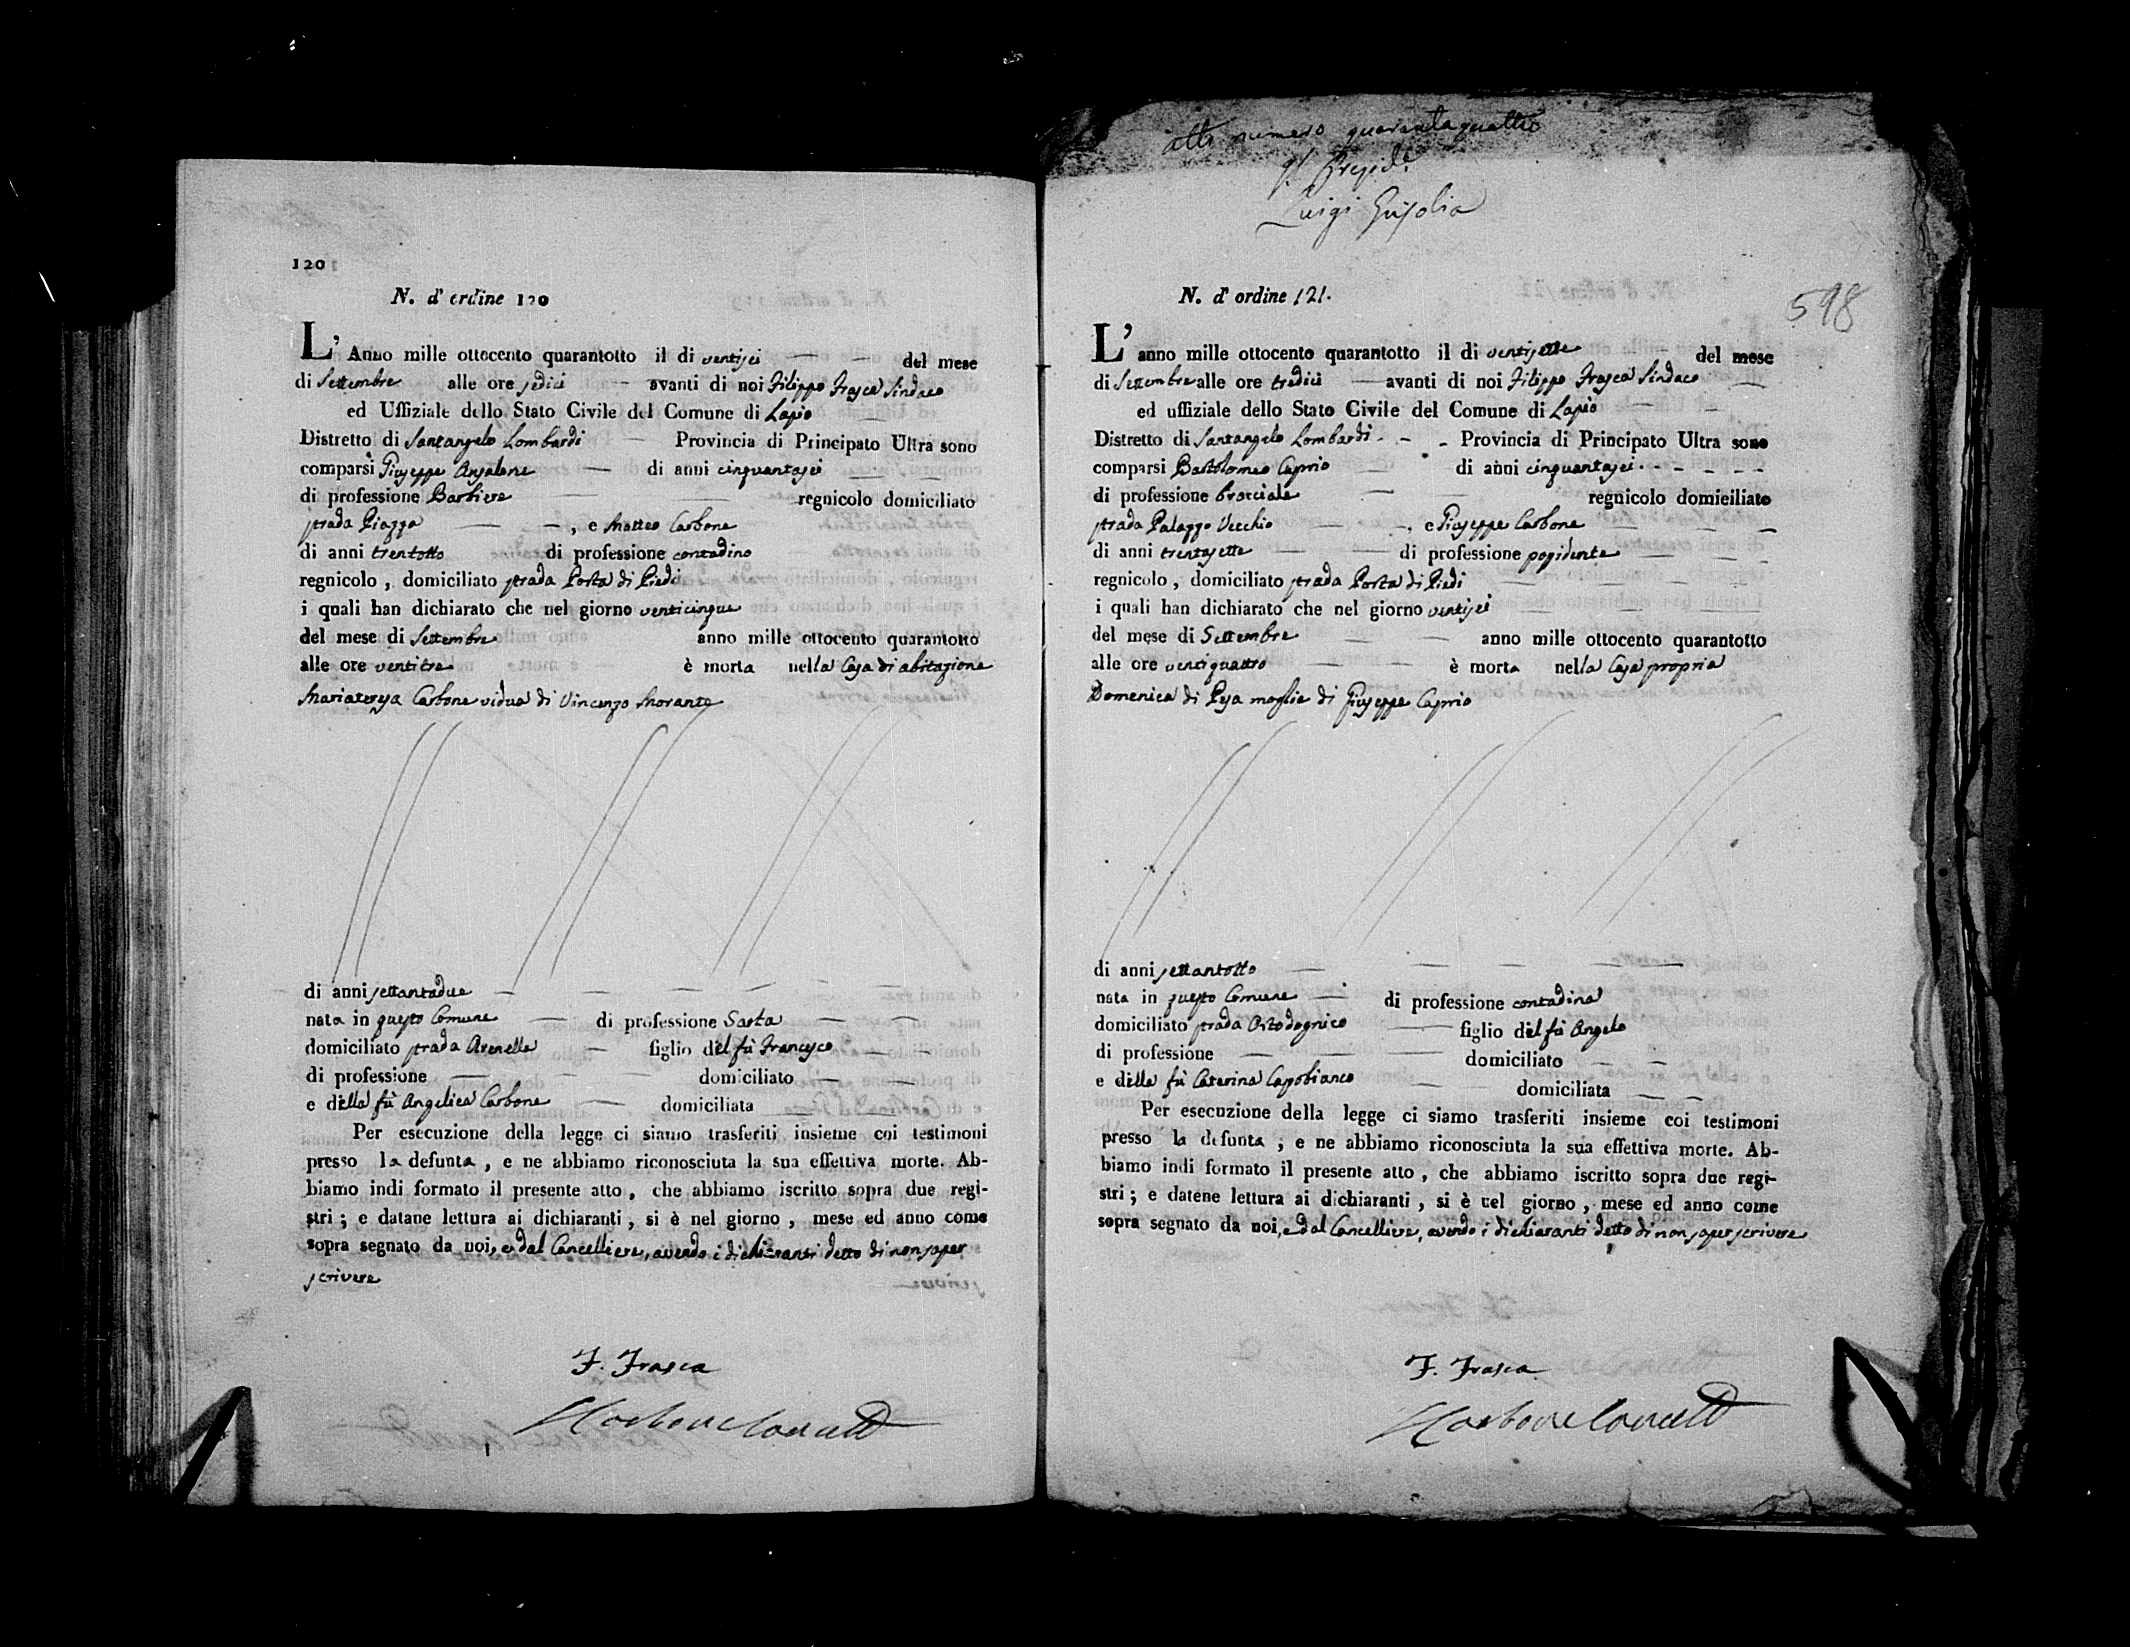 120
N. d' ordine 120
L' Anno mille ottocento quarantotto il di ventisei del mese
di Settembre alle ore sedici avanti di noi Filippo Frasca Sindaco
ed Uffiziale dello Stato Civile del Comune di Lapio
Distretto di Santangelo Lombardi Provincia di Principato Ultra sono
comparsi Giuseppe Anzalone di anni cinquantasei
di professione Barbiere regnicolo domiciliato
strada Piazza , e Matteo Carbone
di anni trentotto di professione contadino
regnicolo , domiciliato strada Porta di Piedi
i quali han dichiarato che nel giorno venticinque
del mese di Settembre anno mille ottocento quarantotto
alle ore ventitre è morta nella Casa di abitazione
Mariateresa Carbone vidua di Vincenzo Morante
di anni settantadue
nata in questo Comune di professione Sarta
domiciliato strada Arenella figlio del fù Francesco
di professione domiciliato
e della fù Angelica Carbone domiciliata
Per esecuzione della legge ci siamo trasferiti insieme coi testimoni
presso la defunta , e ne abbiamo riconosciuta la sua effettiva morte. Ab-
biamo indi formato il presente atto , che abbiamo iscritto sopra due regi-
stri ; e datane lettura ai dichiaranti , si è nel giorno , mese ed anno come
sopra segnato da noi, e dal Cancelliere, avendo i dichiaranti detto di non saper
scrivere
F. Frasca
atti numero quarantaquattro
Luigi Grisolia
598
N. d' ordine 121.
L' anno mille ottocento quarantotto il di ventisette del mese
di Settembre alle ore tredici avanti di noi Filippo Frasca Sindaco
ed uffiziale dello Stato Civile del Comune di Lapio
Distretto di Santangelo Lombardi Provincia di Principato Ultra sono
comparsi Bartolomeo Caprio di anni cinquantasei
di professione bracciale regnicolo domiciliato
strada Palazzo Vecchio , e Giuseppe Carbone
di anni trentasette di professione possidente
regnicolo , domiciliato strada Porta di Piedi
i quali han dichiarato che nel giorno ventisei
del mese di Settembre anno mille ottocento quarantotto
alle ore ventiquattro è morta nella Casa propria
Domenica di Pesa moglie di Giuseppe Caprio
di anni settantotto
nata in questo Comune di professione contadina
domiciliato strada figlio del fù Angelo
di professione domiciliato
e della fù Caterina Capobianco domiciliata
Per esecuzione della legge ci siamo trasferiti insieme coi testimoni
presso la defunta , e ne abbiamo riconosciuta la sua effettiva morte. Ab-
biamo indi formato il presente atto , che abbiamo iscritto sopra due regi-
stri ; e datene lettura ai dichiaranti , si è nel giorno , mese ed anno come
sopra segnato da noi, e dal Cancelliere, avendo i dichiaranti detto di non saper scrivere
F. Frasca